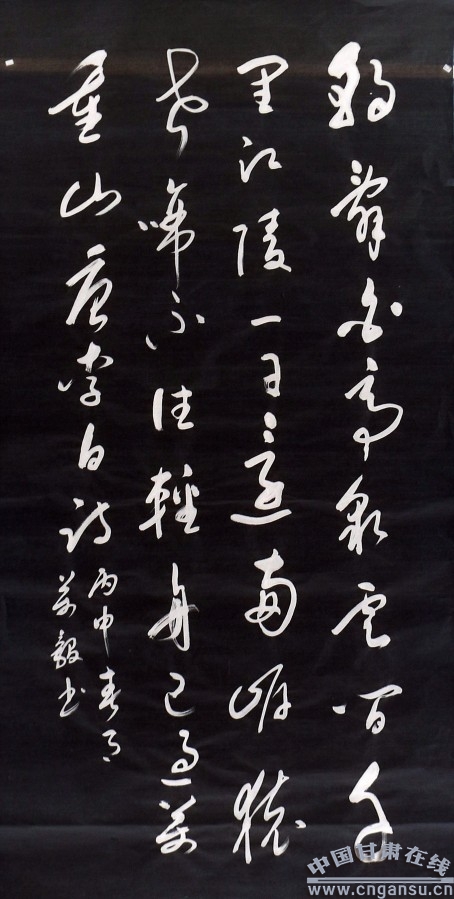 朝辭白帝彩雲間千
里江陵一日還兩岸猿
聲啼不住輕舟已過萬
重山唐李白詩
丙申春月
萬毅书
中国甘肃在线
www.cngansu.cn